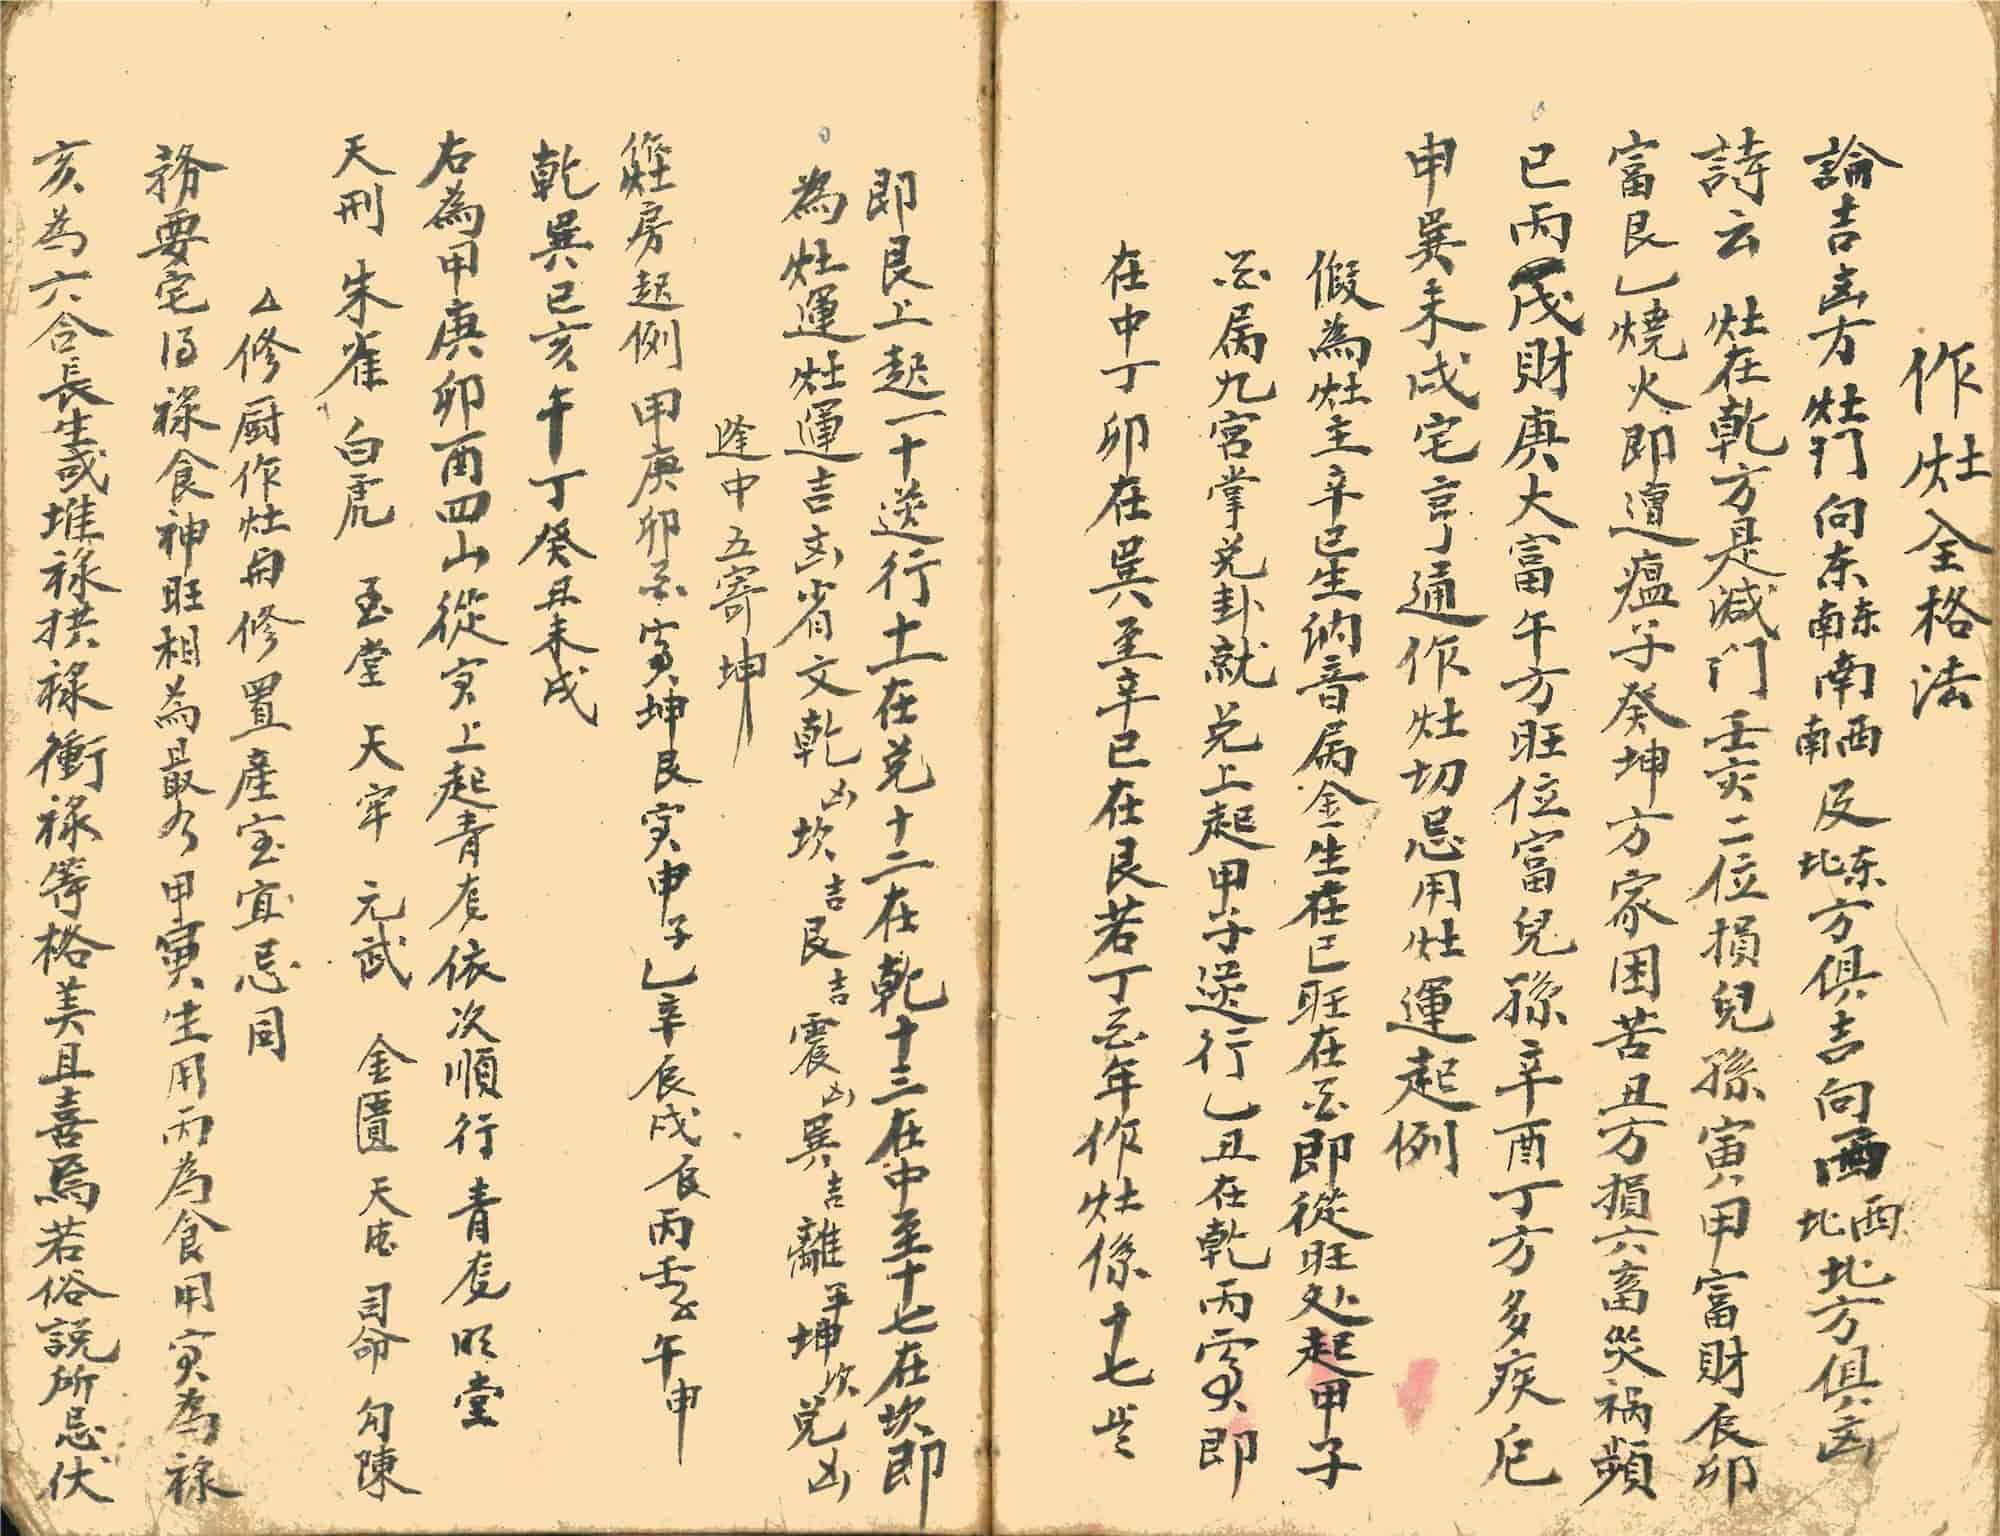 作灶全格法
論吉凶方灶门向东東南南西南及东北方俱吉向西西北北方俱凶
詩云 灶在乾方是滅门壬亥二位損兒孫寅甲富財辰卯
富艮乙燒火即遭瘟子癸坤方家困苦丑方損六畜災禍頻
巳丙戊財庚大富午方旺位富兒孫辛酉丁方多疾厄
申巽未戌宅亨通作灶切忌用灶運起例
假為灶主辛巳生納音属金生在巳旺在酉即從旺处起甲子
酉属九宮掌兑卦就兑上起甲子逆行乙丑在乾丙寅即
在中丁卯在巽至辛巳在艮若丁酉年作灶係十七岁
即艮上起一十逆行十一在兑十二在乾十三在中至十七在坎即
為灶運灶運吉凶省文乾凶坎吉艮吉震凶巽吉離平坤次兑凶
逢中五寄坤
灶房起例 甲庚卯酉寅坤艮寅申子乙辛辰戌辰丙壬子午申
乾巽巳亥午丁癸丑未戌
右為甲庚卯酉四山從寅上起青龙依次順行青龙明堂
天刑 朱雀 白虎 玉堂 天牢 元武 金匱 天德 司命 勾陳
△修厨作灶与修置産室宜忌同
務要宅得祿食神旺相為最如甲寅生用丙為食用寅為祿
亥為六合長生或堆祿拱祿衝祿等格美且喜焉若俗説所忌伏